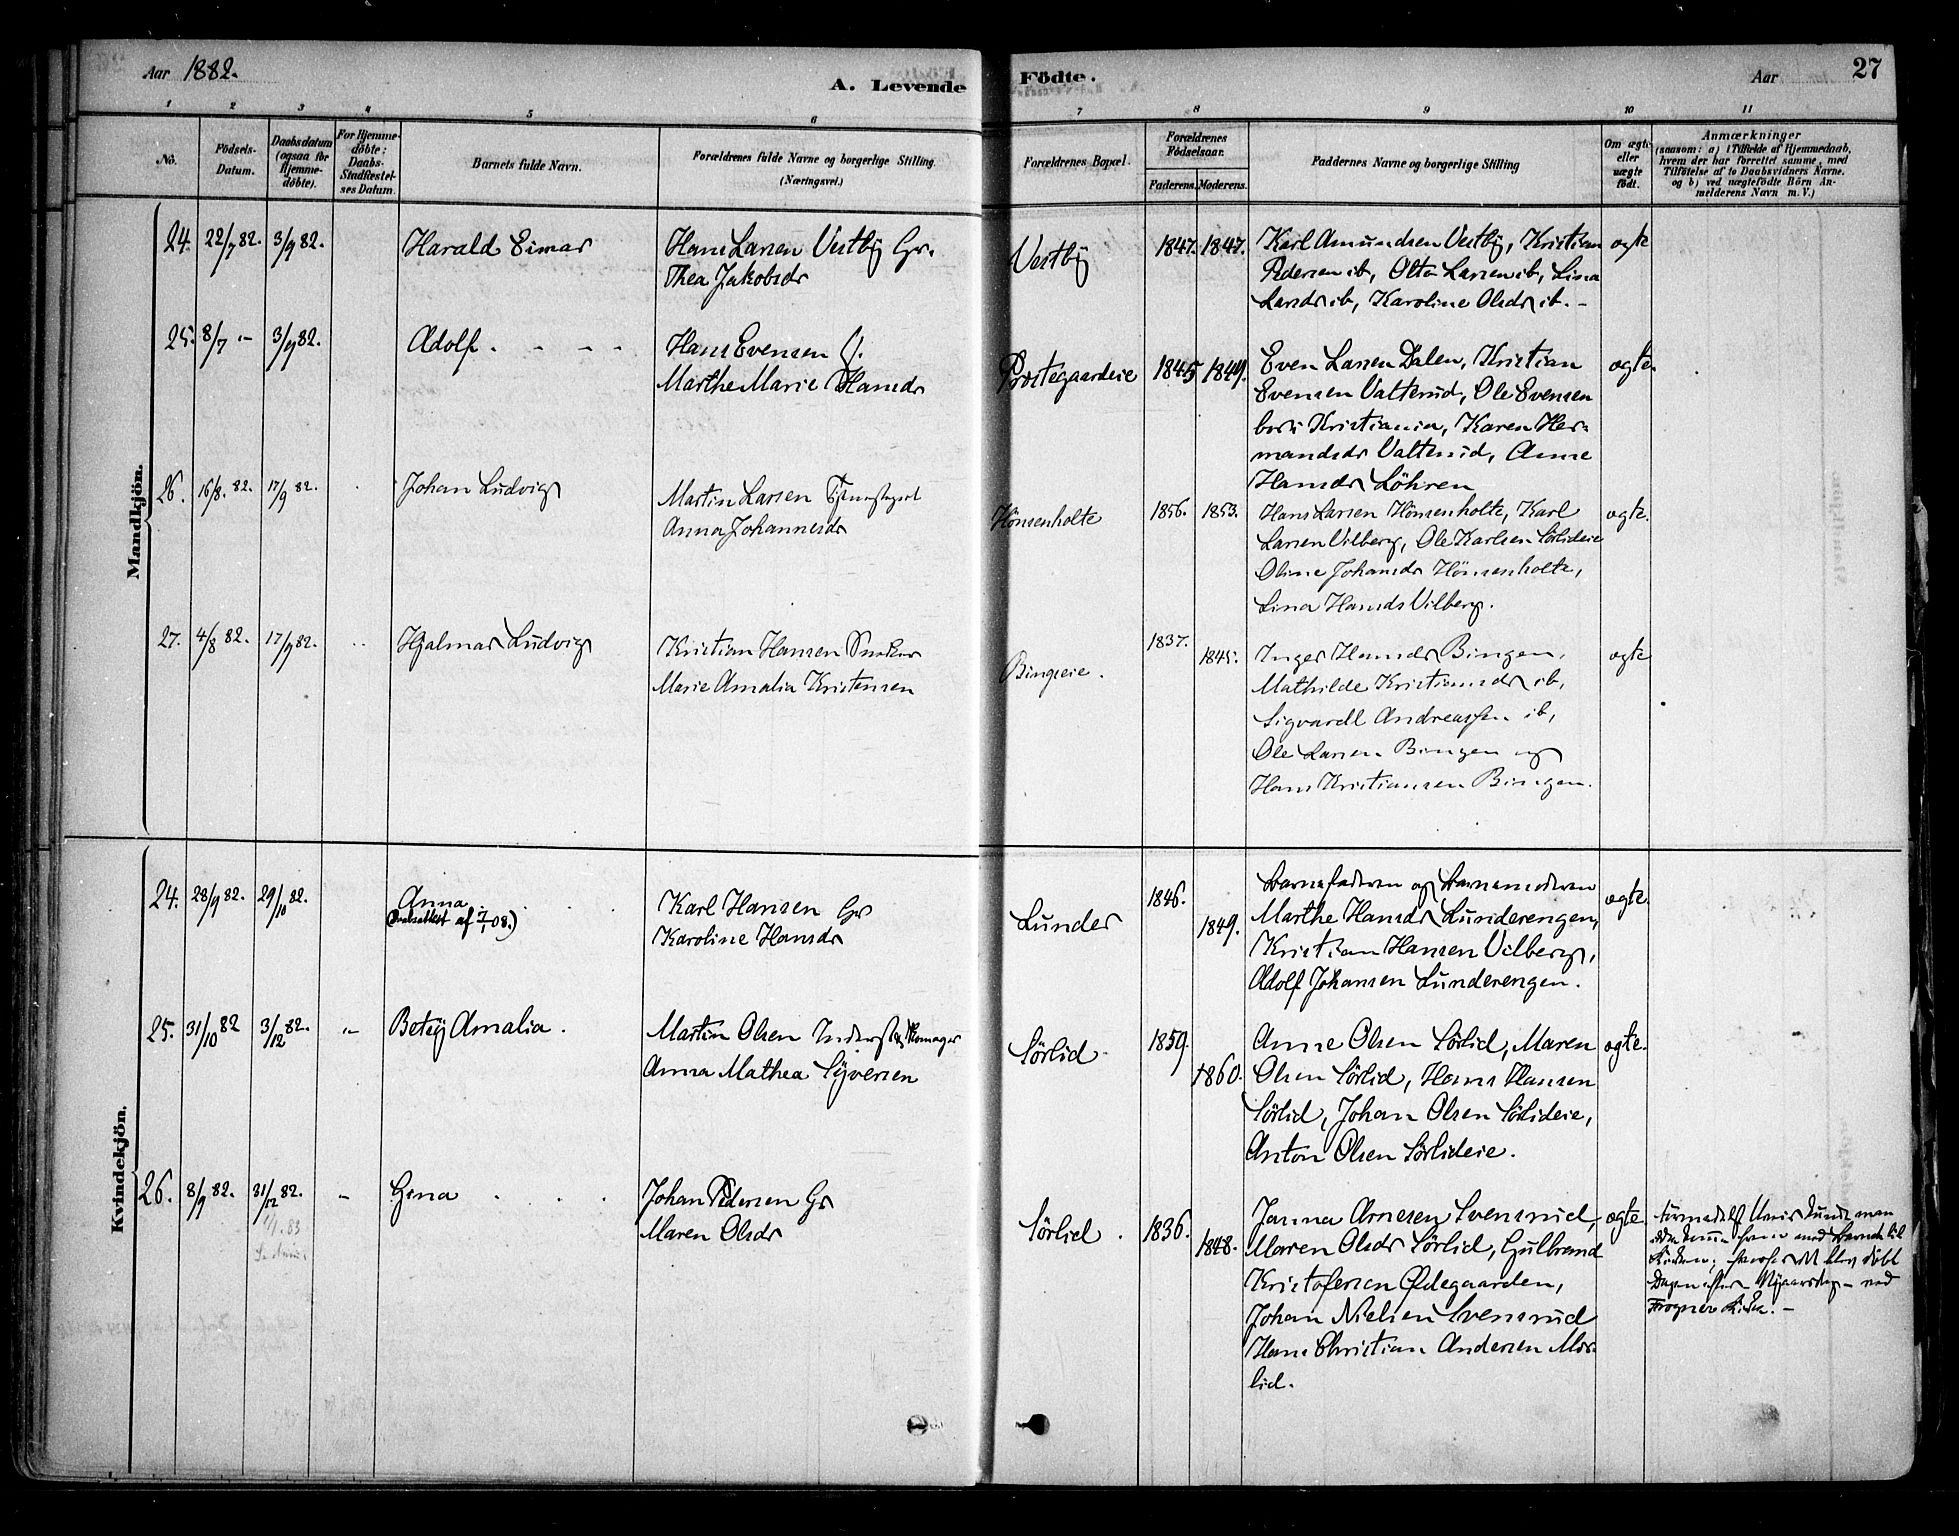 Aar 1882.
A. Levende Födte.
Aar
27
1 2 3 4 5 6 7 8 9 10 11
No.
Födsels-Datum.
Daabsdatum (ogsaa for Hjemme-döbte).
For Hjemme-döbte: Daabs-Stadfæstel-ses Datum.
Barnets fulde Navn.
Forældrenes fulde Navne og borgerlige Stilling.
(Næringsvei.)
Forældrenes Bopæl.
Forældrenes Födselsaar.
Faderens. Moderens.
Faddernes Navne og borgerlige Stilling
Om ægte eller uægte födt.
Anmærkninger
(saasom: a) i Tilfælde af Hjemmedaab,
hvem der har forrettet samme, med
Tilföielse af to Daabsvidners Navne.
og b) ved uægtefödte Börn An-
melderens Navn m. V.)
Mandkjön.
24. 22/7 82. 3/9 82. Harald Eimar
Hans Larsen Vestby Gr.
Thea Jakobsdr
Vestby 1847. 1847.
Karl Amundsen Vestby, Kristian
Pedersen ib, Otto Larsen ib, Lina
Larsdr ib, Karoline Olsdr ib. -
ægte
25. 8/7 - 3/9 82. Adolf. - - -
Hans Evensen
Marthe Marie Hansdr
Præstegaardeie 1845 1849.
Even Larsen Dalen, Kristian
Evensen Valterud, Ole Evensen
Kristiania, Karen Her-
mandsdr Valterud, Anne
Hansdr Löhren
ægte.
26. 16/8. 82. 17/9 82. Johan Ludvig
Martin Larsen
Anna Johannesdr
Hönsenholte 1856. 1853.
Hans Larsen Hönsenholte, Karl
Larsen Vilberg, Ole Karlsen Sörlideie
Oline Johansdr Hönsenholte,
Lina Hansdr Vilberg.
ægte.
27. 4/8 82. 17/9 82. Hjalmar Ludvig
Kristian Hansen Snedker
Marie Amalia Kristensen
Bingseie. 1837. 1845.
Inger Hansdr Bingen,
Mathilde Kristiansdr ib,
Sigvardt Andreassen ib,
Ole Larsen Bingen og
Hans Kristiansen Bingen.
ægte
Kvindekjön.
24. 28/9 82. 29/10 82. Anna
(Daabsattest af 7/1 08.)
Karl Hansen Gr
Karoline Hansdr
Lunder 1846. 1849.
Barnefaderen og Barnemoderen
Marthe Hansdr Lunderengen,
Kristian Hansen Vilberg,
Adolf Johansen Lunderengen.
ægte
25. 31/10 82 3/12 82. - Betsy Amalia.
Martin Olsen Inderst & Skomager
Anna Mathea Syversen
Sörlid. 1859. 1860.
Anne Olsen Sörlid, Maren
Olsen Sörlid, Hans Hansen
Sörlid, Johan Olsen Sörlideie,
Anton Olsen Sörlideie.
ægte.
26. 8/9 82. 31/12 82. - Gina
1/1. 83
Johan Pedersen Gr
Maren Olsdr
Sörlid. 1836. 1848.
Janna Arnesen Svensrud,
Maren Olsdr Sörlid, Gulbrand
Kristofersen Ødegaarden,
Johan Nielsen Svensrud
Hans Christian Andersen Mör-
lid.
ægte
Formedelst Uveir kunde man
ikke komme frem med Barnet til
Kirken; hvorfor det blev döbt
Dagen efter Nyaarsdag - ved
Frogner Kirke. -